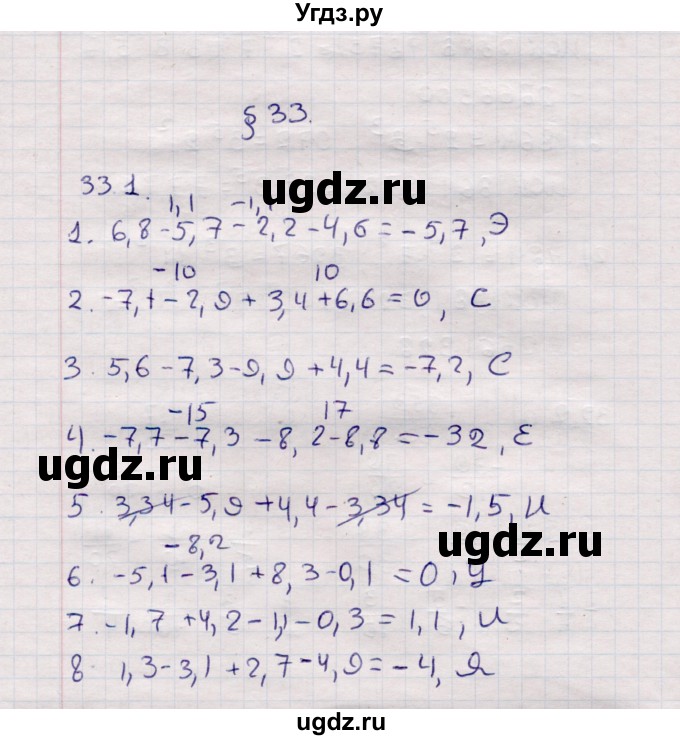 Угдз.ру
§ 33.
33.1.
1,1 -1,1
ugdz.ru
1. 6,8 - 5,7 - 2,2 - 4,6 = - 5,7, Э
-10 10
2. -7,1 - 2,9 + 3,4 + 6,6 = 0, С
3. 5,6 - 7,3 - 9,9 + 4,4 = - 7,2, С
-15 17
4. -7,7 - 7,3 - 8,2 - 8,8 = - 32, Е
ugdz.ru
5. 3,34 - 5,9 + 4,4 - 3,34 = -1,5, И
ugdz.ru
-8,2
6. -5,1 - 3,1 + 8,3 - 0,1 = 0, У
7. -1,7 + 4,2 - 1,1 - 0,3 = 1,1, И
8. 1,3 - 3,1 + 2,7 - 4,9 = - 4, Я
ugdz.ru